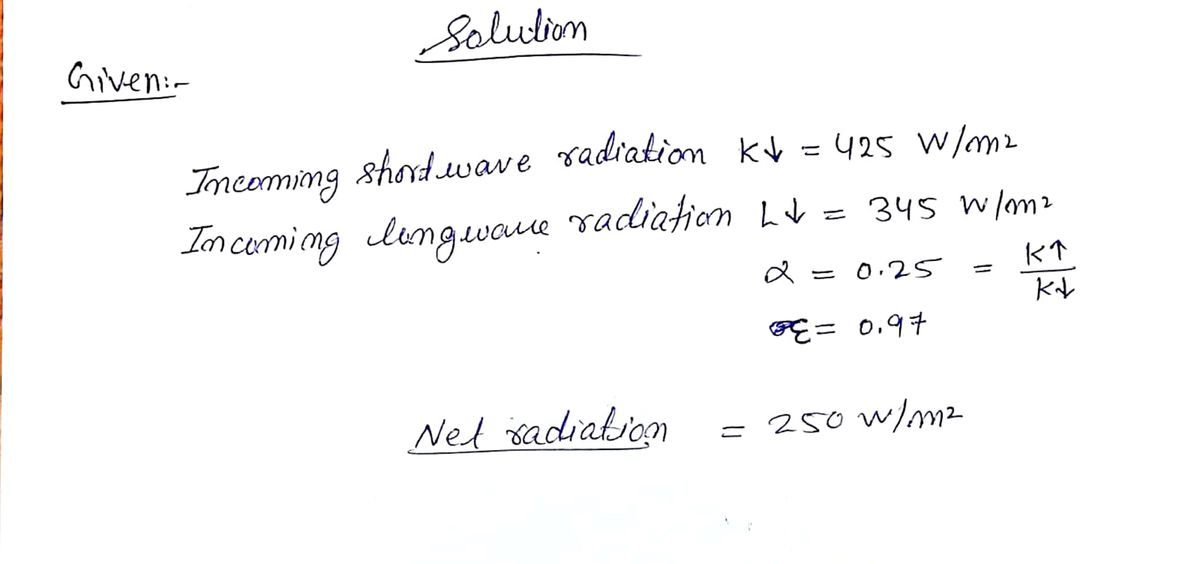 Solution
Given:-
Incoming shortwave radiation K↓ = 425 W/m²
Incoming longwave radiation L↓ = 345 W/m²
α = 0.25 = K↑/K↓
ε = 0.97
Net radiation = 250 W/m²